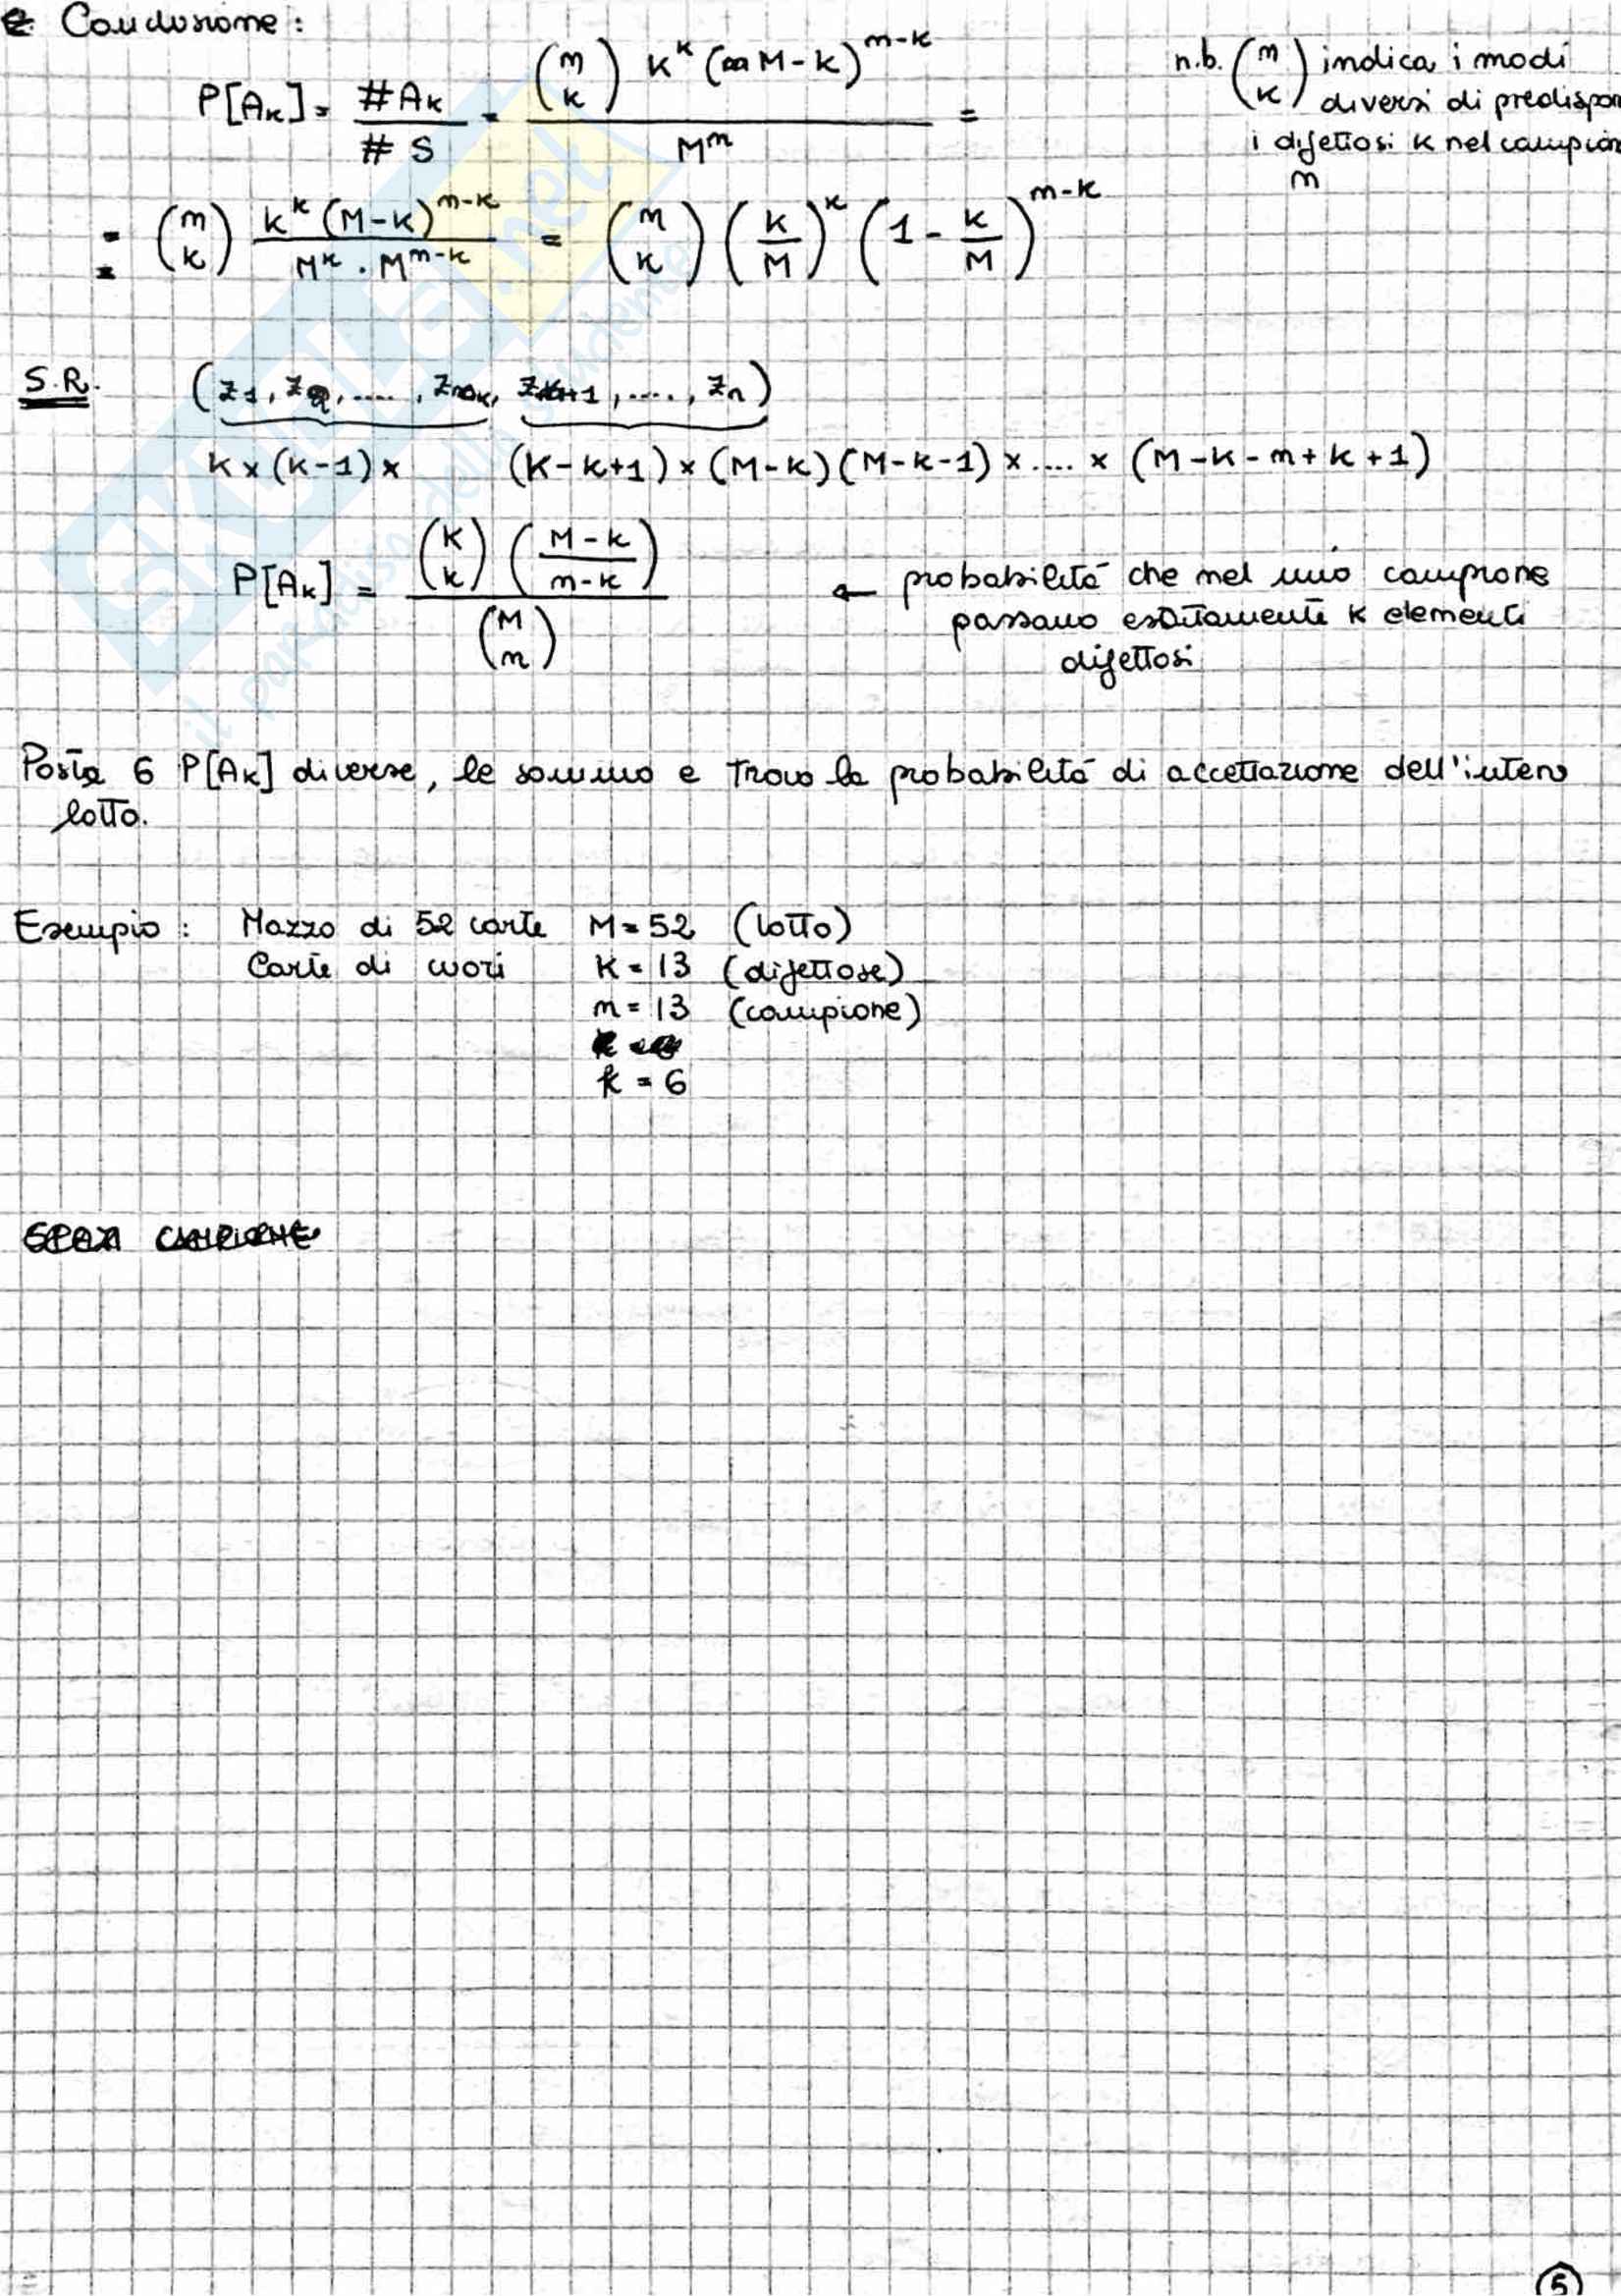 Conclusione:
P[Ak] = #Ak / #S = (n k) K^k (M-K)^(n-k) / M^n =
n.b. (n k) indica i modi
diversi di predispor
i difettosi k nel campion
n
= (n k) K^k (M-K)^(n-k) / M^k · M^(n-k) = (n k) (K/M)^k (1 - K/M)^(n-k)
S.R. (z1, z2, ...., zk, zk+1, ...., zn)
K x (K-1) x (K-k+1) x (M-K)(M-K-1) x .... x (M-K-n+k+1)
P[Ak] = (K k) (M-K / n-k) / (M n)
← probabilità che nel mio campione
passano esattamente k elementi
difettosi
6 P[Ak] diverse, le sommo e trovo la probabilità di accettazione dell'intero
lotto.
Esempio: Mazzo di 52 carte M = 52 (lotto)
Carte di cuori K = 13 (difettose)
n = 13 (campione)
k = 6
SKUOLA.net
il paradiso dello studente
5